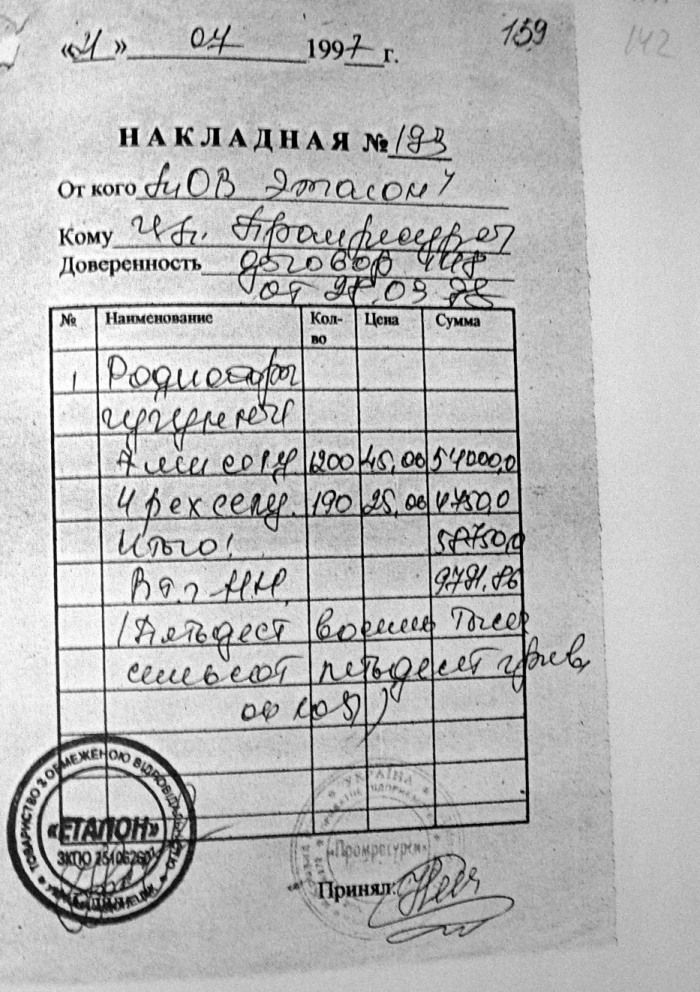 159
142
« » 04 1997 г.
НАКЛАДНАЯ № 193
От кого ТОВ Эталон"
Кому ч.п. Промресурсы
Доверенность договор
от 28.03
№ Наименование Кол-во Цена Сумма
1 Радиаторы
чугунные
7 ми секц. 1200 45,00 54000,0
4 рех секц. 190 25,00 4750,0
Итого! 58750,0
В т.ч. НДС 9791.86
(Пятьдесят восемь тысяч
семьсот пятьдесят гривен
00 коп)
ТОВАРИСТВО З ОБМЕЖЕНОЮ ВІДПОВІДАЛЬНІСТЮ
«ЕТАЛОН»
ЗКПО
УКРАЇНА
«Промресурси»
Принял: